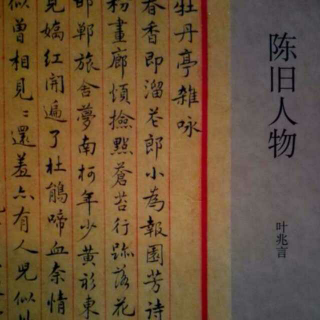 陈旧人物
叶兆言
牡丹亭雜咏
春香即溜花郎小為報園芳詩
初畫廊煩撿點蒼苔行跡落花
邯鄲旅舍夢南柯年少黃衫東
見嫣紅開遍了杜鵑啼血奈情
似曾相見〻還羞亦有人兒似